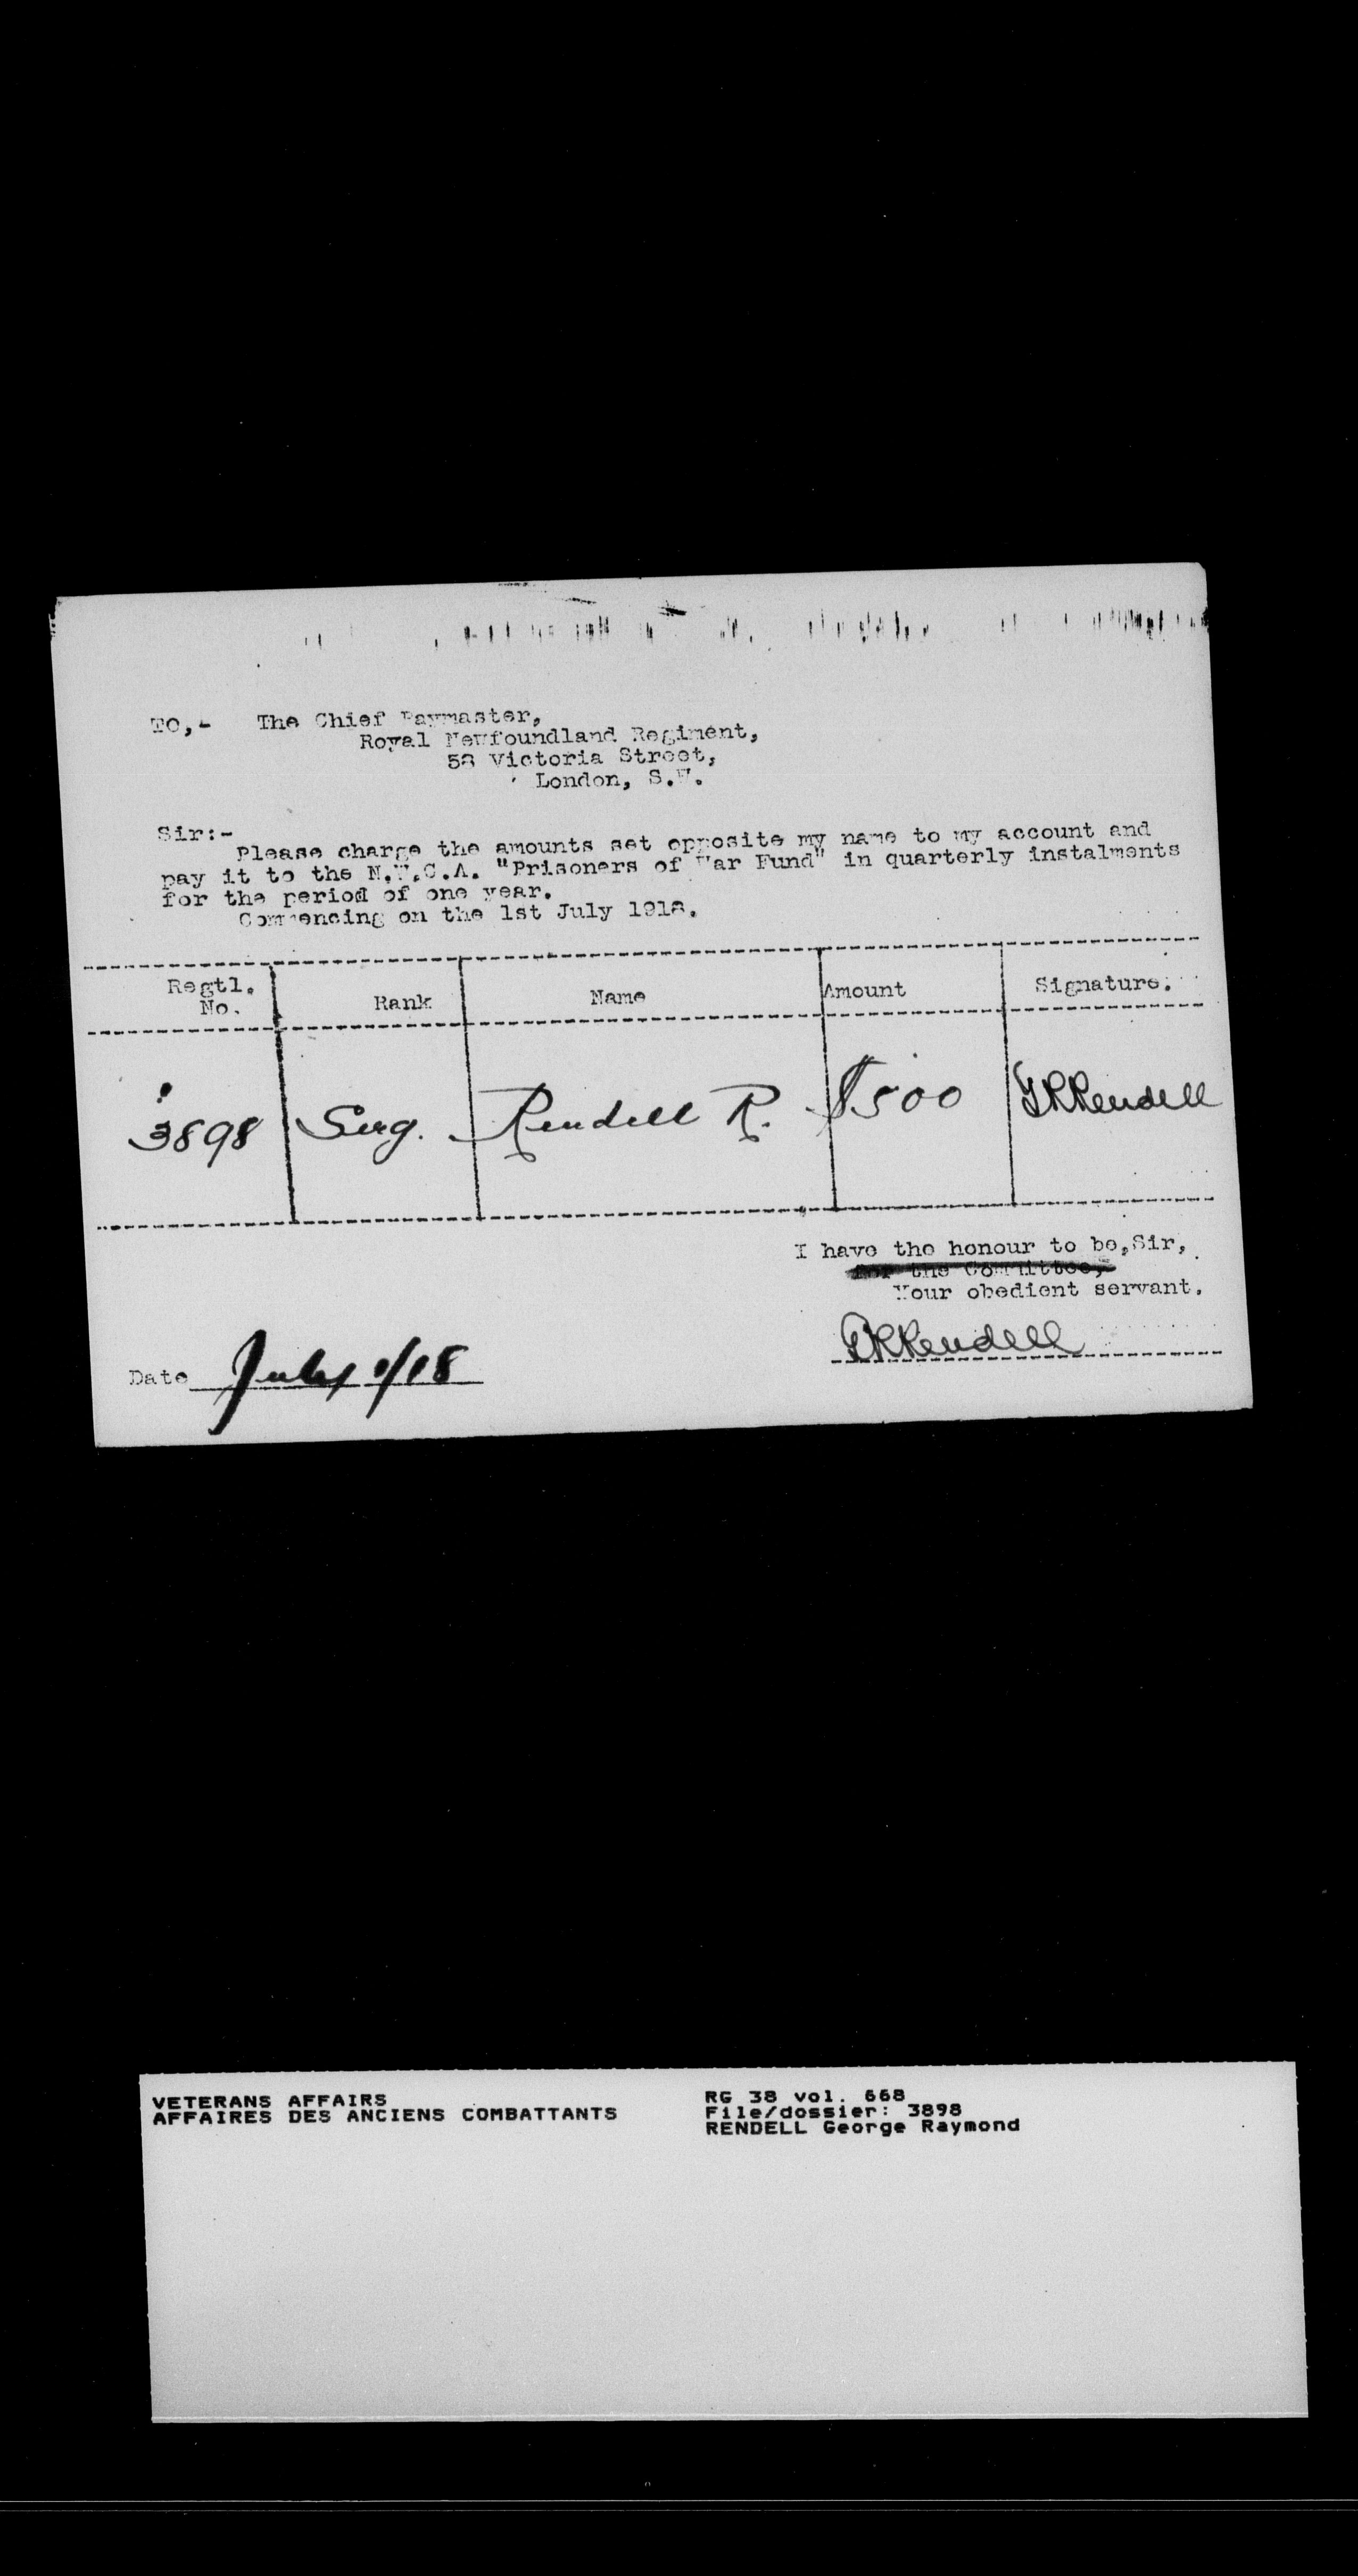 TO,- The Chief Paymaster,
Royal Newfoundland Regiment,
58 Victoria Street,
London, S.W.
Sir:-
Please charge the amounts set opposite my name to my account and
pay it to the N.W.C.A. "Prisoners of War Fund" in quarterly instalments
for the period of one year.
Commencing on the 1st July 1918.
Regtl. No. Rank Name Amount Signature.
3898 Serg. Rendell R. $500 GRRendell
I have the honour to be,Sir,
for the Committee,
Your obedient servant.
GRRendell
Date July 1/18
VETERANS AFFAIRS
AFFAIRES DES ANCIENS COMBATTANTS
RG 38 vol. 668
File/dossier: 3898
RENDELL George Raymond